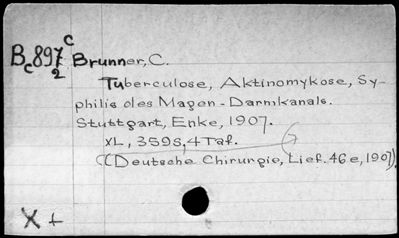 Bc897c2 Brunner, C.
Tuberculose, Aktinomykose, Sy-
philis des Magen-Darmkanals.
Stuttgart, Enke, 1907.
XL, 359S, 4 Taf.
((Deutsche Chirurgie, Lief. 46e, 1907).
X +